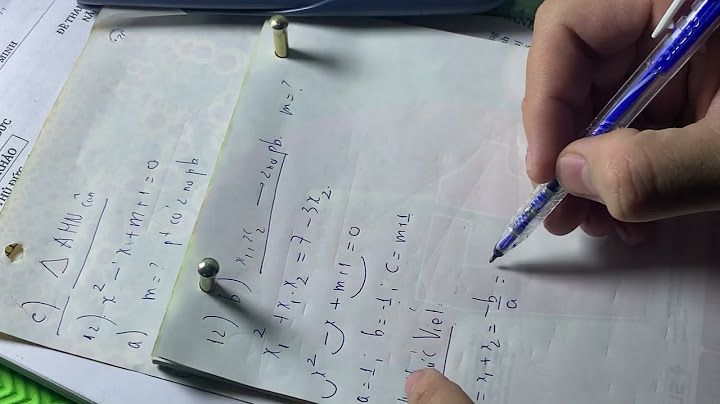 c) Δ AMN cân
12) x² - x + m + 1 = 0
a) m = ? pt có 2 no pb.
12) b) x₁, x₂ → 2 no pb. m = ?
x₁² + x₁.x₂ = 7 - 3x₂.
x² - x + m+1 = 0
a = 1; b = -1; c = m+1
Viet.
= x₁ + x₂ = -b/a =
ĐỀ THA
MINH
ĐỨC
KHẢO